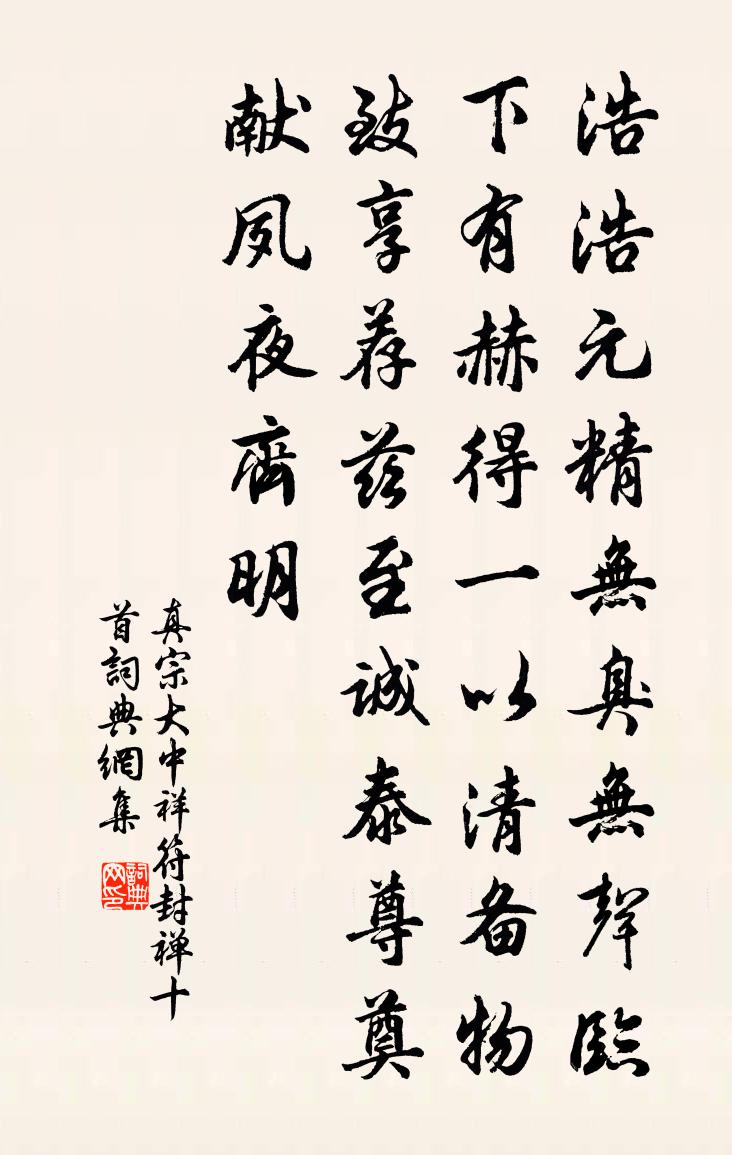 浩浩元精無臭無聲臨
下有赫得一以清备物
致享荐兹至诚泰尊奠
献夙夜齊明
真宗大中祥符封禅十
首詞典網集
詞典网印